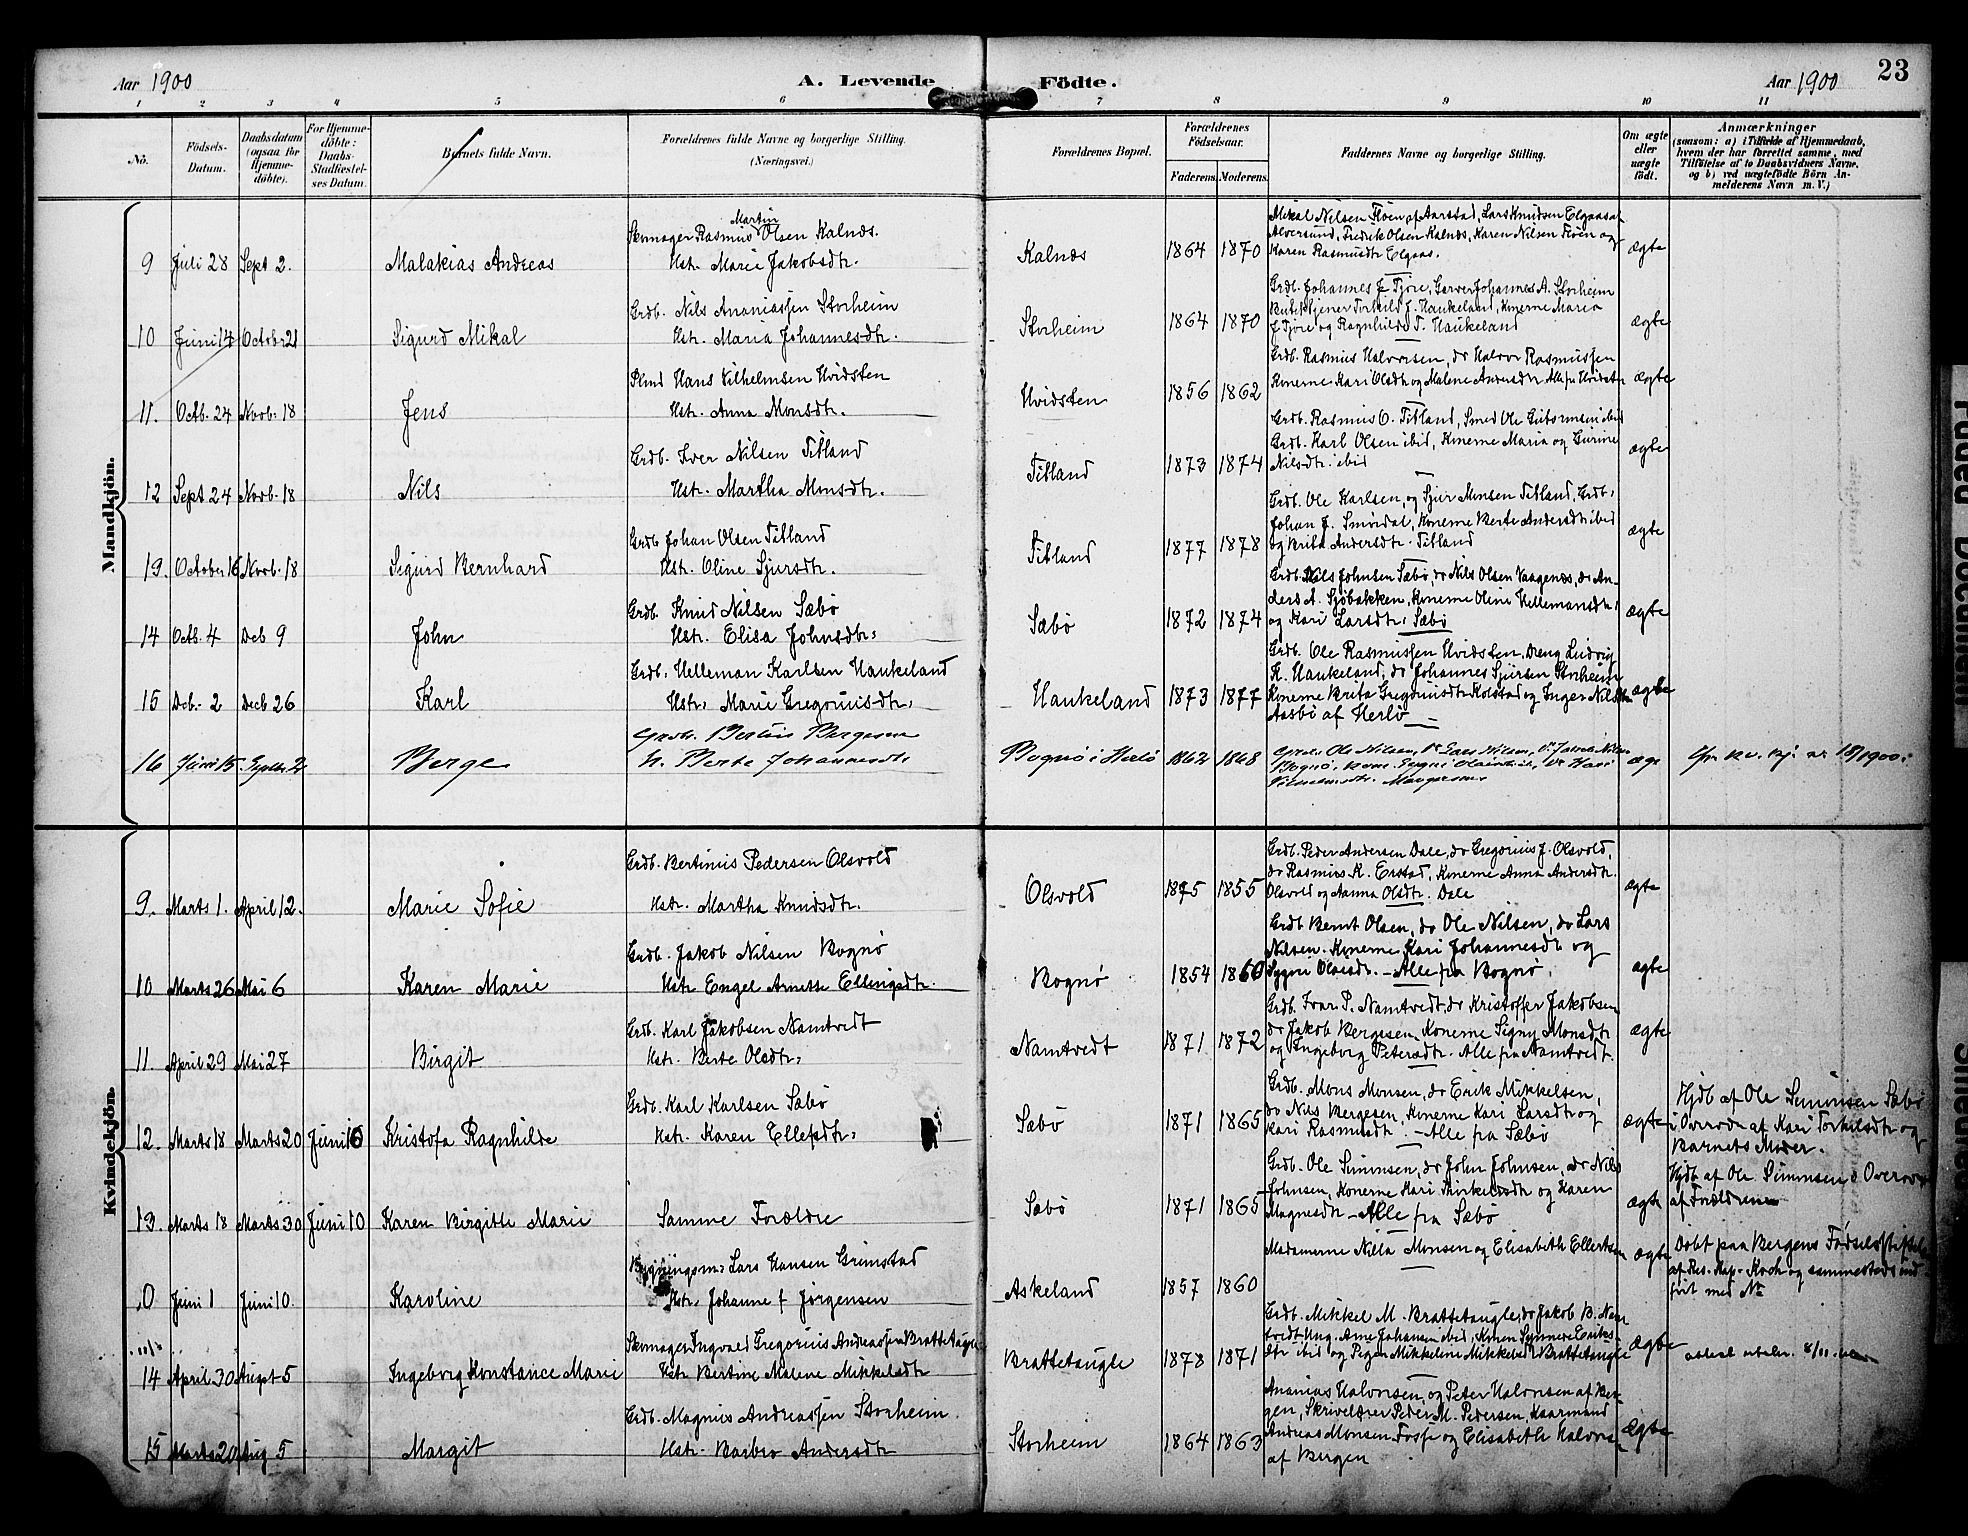 Aar 1900
A. Levende Födte.
Aar 1900
23
1 2 3 4 5 6 7 8 9 10 11
No.
Födsels-Datum.
Daabsdatum (ogsaa for Hjemme-döbte).
For Hjemme-döbte: Daabs-Stadfæstel-ses Datum.
Barnets fulde Navn.
Forældrenes fulde Navne og borgerlige Stilling. (Næringsvei.)
Forældrenes Bopæl.
Forældrenes Födselsaar.
Faderens. Moderens.
Faddernes Navne og borgerlige Stilling.
Om ægte eller uægte født.
Anmærkninger
(saasom: a) i Tilfælde af Hjemmedaab,
hvem der har forrettet samme, med
Tilföielse af to Daabsvidners Navne,
og b) ved uægtefödte Börn An-
melderens Navn m.V.)
Mandkjön.
9 Juli 28 Sept 2. Malakias Andreas
Skomager Rasmus Martin Olsen Kalnæs.
Hstr. Marie Jakobsdtr.
Kalnæs 1864 1870
Mikal Nilsen Floen af Aarstad, Lars Knudsen Elgaas af
Alversund, Fredrik Olsen Kalnæs, Karen Nilsen Floen og
Karen Rasmusdtr Elgaas.
ægte
10 Juni 14 October 21 Sigurd Mikal
Grdb. Nils Ananiassen Storheim
Hstr. Maria Johannesdtr.
Storheim 1864 1870
Grdb. Johannes J Tjore, Garver Johannes A. Storheim
Butiktjener Torkild J. Haukeland, Konerne Maria
J Tjore og Ragnhilde T. Haukeland
ægte
11. Octb. 24 Novb. 18 Jens
Plmd Hans Vilhelmsen Hvidsten
Hstr. Anna Monsdtr.
Hvidsten 1856 1862
Grdb. Rasmus Halvorsen, do Halvor Rasmussen
Konerne Kari Olsdtr og Malene Andersdtr. Alle fra Hvidsten
ægte
12 Sept 24 Novb. 18 Nils
Grdb. Iver Nilsen Titland
Hstr. Martha Monsdtr.
Titland 1873 1874
Grdb. Rasmus O. Titland, Smed Ole Guttormsen ibid
Grdb. Karl Olsen ibid, Konerne Maria og Gurine
Nilsdtr. ibid
ægte
13. October 16 Novb. 18 Sigurd Bernhard
Grdb Johan Olsen Titland
Hstr. Oline Sjursdtr.
Titland 1877 1878
Grdb. Ole Karlsen, og Sjur Monsen Titland, Grdb.
Johan J. Smørdal, Konerne Berte Andersdtr ibid
og Brita Andersdtr. Titland
ægte
14 Octb. 4 Dcb 9 John
Grdb. Knud Nilsen Sæbø
Hstr. Elisa Johnsdtr.
Sæbø 1872 1874
Grdb. Nils Johnsen Sæbø, do Nils Olsen Vaagenes, do An-
ders A. Sjøbakken, Konerne Oline Hellemansdtr,
og Kari Larsdtr. Sæbø
ægte
15 Dcb. 2 Decb 26 Karl
Grdb. Helleman Karlsen Haukeland
Hstr. Marie Gregoriusdtr.
Haukeland 1873 1877
Grdb. Ole Rasmussen Hvidsten, Dreng Ludvig
K. Haukeland, do Johannes Sjursen Storheim
Konerne Brita Gregoriusdtr Kolstad og Inger Nilsdtr
Aasbø af Herlø
ægte
16 Juni 15 Septbr 2 Berge
Grdb. Bertin Bergesen
h. Berte Johannesdtr.
Bognø i Herlø 1862 1868
Grdb. Ole Nilsen, do Lars Nilsen, do Jakob Nilsen
Bognø, Kone
ægte
Kvindekjön.
9. Marts 1. April 12. Marie Sofie
Grdb. Bertinius Pedersen Olsvold
Hstr. Martha Knudsdtr.
Olsvold 1875 1855
Grdb. Peder Andersen Dale, do Gregorius J. Olsvold,
do Rasmus K. Erstad, Konerne Anna Andersdtr.
Olsvold og Aanna Olsdtr. Dale
ægte
10 Marts 26 Mai 6 Karen Marie
Grdb. Jakob Nilsen Bognø
Hstr Engel Arnette Ellingsdtr.
Bognø 1854 1860
Grdb Bernt Olsen, do Ole Nilsen, do Lars
Nilsen. Konerne Kari Johannesdtr og
Sygni Olsdtr. – Alle fra Bognø.
ægte
11. April 29 Mai 27 Birgit
Grdb. Karl Jakobsen Namtvedt
Hstr. Berte Olsdtr.
Namtvedt 1871 1872
Grdb. Ivar P. Namtvedt, do Kristoffer Jakobsen
do Jakob Bergesen, Konerne Signy Monsdtr
og Ingeborg Petersdtr. Alle fra Namtvedt.
ægte
12. Marts 18 Marts 20 Juni 10 Kristofa Ragnhilde
Grdb. Karl Karlsen Sæbø
Hstr. Karen Ellefsdtr.
Sæbø 1871 1865
Grdb. Mons Monsen, do Erik Mikkelsen,
do Nils Bergesen, Konerne Kari Larsdtr og
Kari Rasmusdtr. – Alle fra Sæbø
ægte
Hjdb af Ole Simonsen Sæbø
i Overvær af Kari Torkilsdtr og
Barnets Moder.
13. Marts 18 Marts 30 Juni 10 Karen Birgitte Marie
Samme Forældre
Sæbø 1871 1865
Grdb. Ole Simonsen, do John Johnsen, do Nils
Johnsen, Konerne Kari Thirkelsdtr og Karen
Magnesdtr – Alle fra Sæbø
ægte
Hjdb af Ole Simonsen i Overvær
af Forældrene
0 Juni 1 Juni 10. Karoline
Bygningsm. Lars Hansen Grimstad
Hstr. Johanne f Jørgensen
Askeland 1857 1860
Madamerne Nilla Monsen og Elisabeth Ellertsen
ægte
Døbt paa Bergens Fødselsstiftelse
af Res. Kap. Koch og sammesteds ind-
ført med No
14 April 30 August 5 Ingeborg Konstance Marie
Skomager Ingvald Gregorius Andreassen Brattetaugle
Hstr Bertine Malene Mikkelsdtr
Brattetaugle 1878 1871
Grdb. Mikkel M. Brattetaugle, do Jakob B. Nam
tvedt Ung. Arne Johansen ibid, Konen Synneve Eriks-
dtr ibid og Pigen Mikkeline Mikkelsdtr Brattetaugle
ægte
15 Marts 20 Aug 5 Margit
Grdb. Magnus Andreassen Storheim.
Hstr. Barbro Andersdtr
Storheim 1864 1863
Ananias Halvorsen, og Peter Halvorsen af Ber-
gen, Skrivelærer Peder M. Pedersen, Kaarmand
Andreas Monsen Fosse og Elisabeth Halvors
af Bergen
Ægte
Faded Document
Smeared